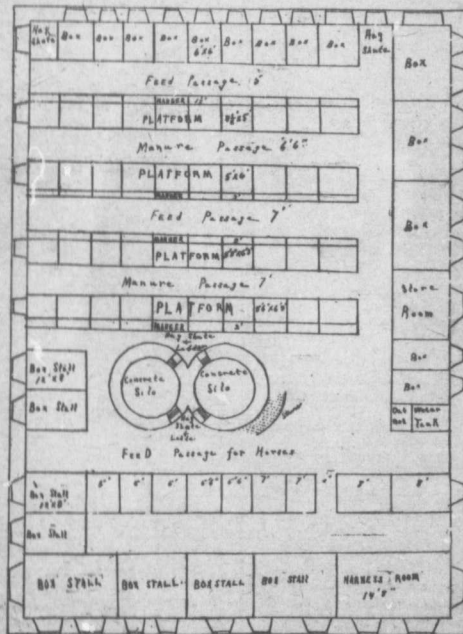 Hay Shute Box Box Box Box Box 6'x8' Box Box Box Box Hay Shute
Box
Feed Passage
MANGER
PLATFORM
Manure Passage 6'6"
Box
PLATFORM 5'x6'
MANGER 2'
Feed Passage 7'
Box
MANGER 2'
PLATFORM
Manure Passage 7'
Store Room
PLATFORM
MANGER 2'
Hay Shute
Ladder
Box Stall
Concrete Silo
Concrete Silo
Box
Box Stall
Box
Shute
Oat Box
Water Tank
FEED Passage for Horses
Box Stall
5' 5' 5' 7' 7' 8' 8'
Box Stall
BOX STALL BOX STALL BOX STALL BOX STALL HARNESS ROOM